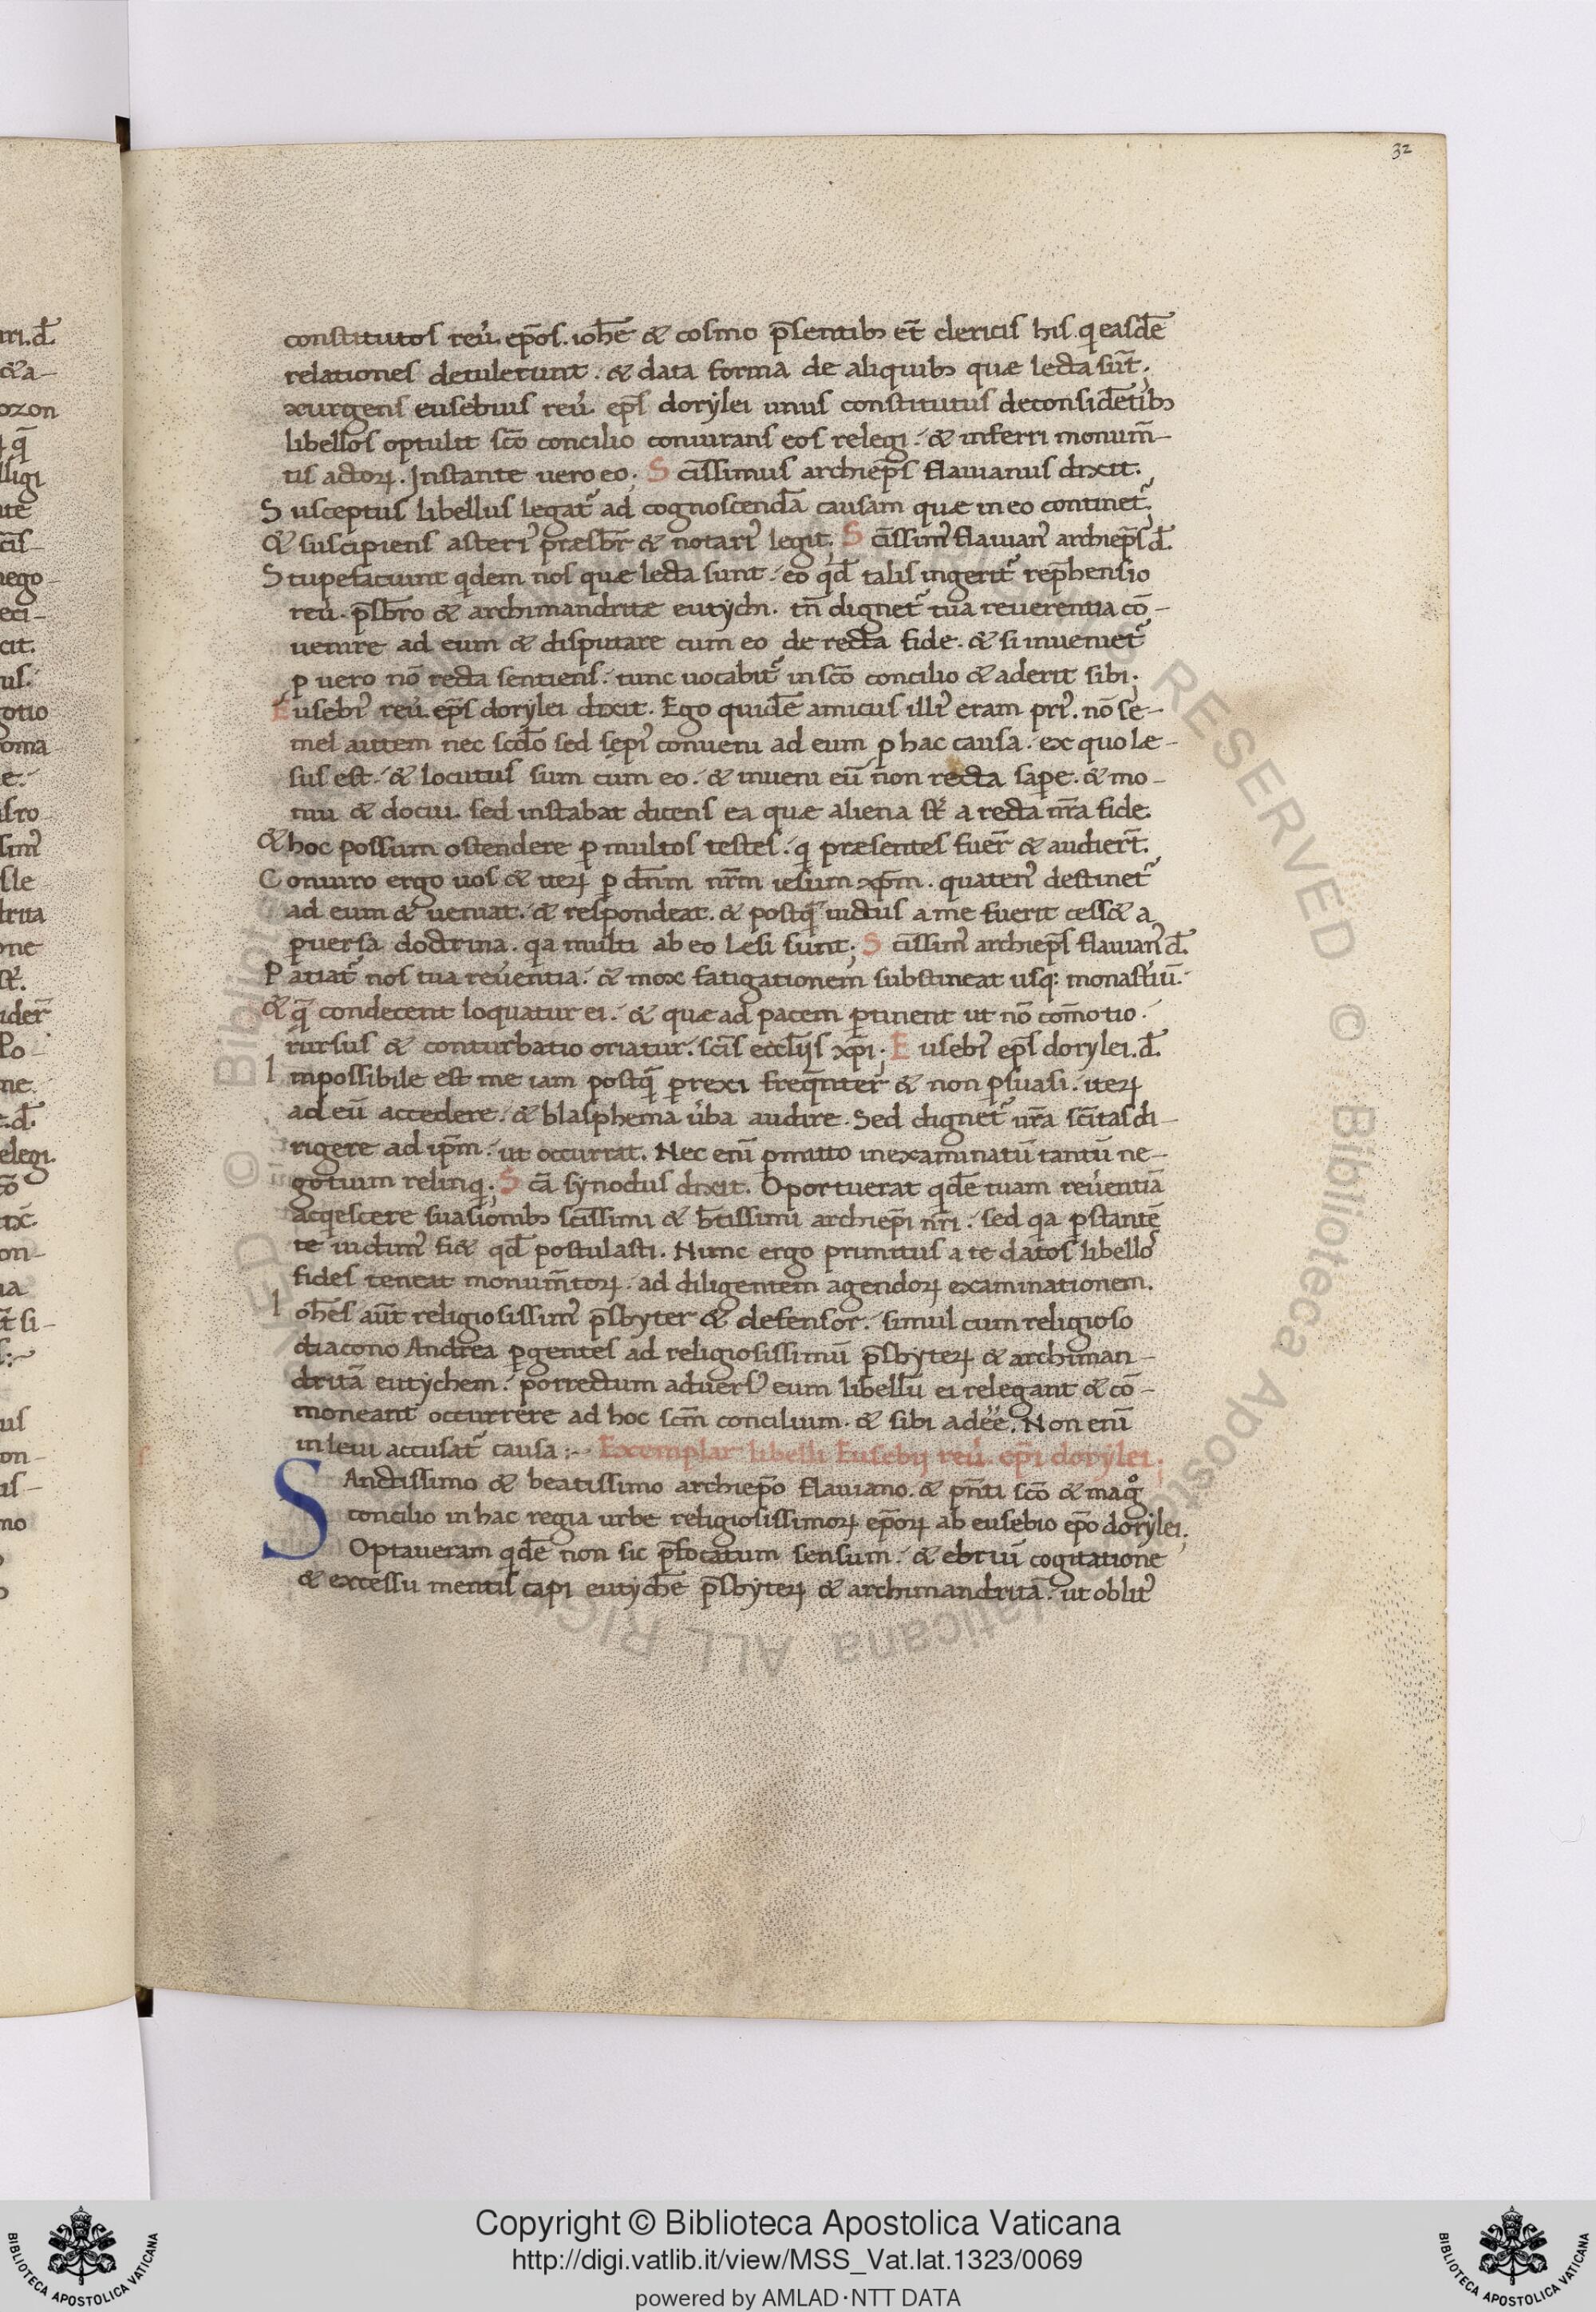 32
constitutos reu̾. ep̄os. ioh̄e & cosmo p̄sentib; et̄ clericis his. qi easdē
relationes detulerunt. & data forma de aliquib; quæ lecta sūt;
exurgens eusebius reu̾. ep̄s dorylei unus constitutus deconsidētib;
libellos optulit sc̄o concilio coniurans eos relegi. & inferri monum̄-
tis actoꝝ. Instante uero eo; S cīssimus archiep̄s flauianus dixit.
Susceptus libellus legat᷑ ad cognoscendā causam quæ in eo continet᷑;
& suscipiens asteri᷒ præsbr̄ & notari᷒ legit; S cīssim᷒ flauian᷒ archiep̄s d̄.
Stupefaciunt qidem nos quæ lecta sunt. eo qd̄ talis ingerit᷑ rep̄hensio
reu̾. p̄sbr̄o & archimandritæ eutychi. tn̄ dignet᷑ tua reuerentia cō-
uenire ad eum & disputare cum eo de recta fide. & si inueniet᷑
ꝑ uero nō recta sentiens. tunc uocabit᷑ in sc̄o concilio & aderit sibi;
Eusebi᷒ reu̾. ep̄s dorylei dixit. Ego quidē amicus illi᷒ eram pri᷒. nō se-
mel autem nec scd̄o sed sepi᷒ conueni ad eum ꝑ hac causa. ex quo le-
sus est. & locutus sum cum eo. & inueni eū non recta sapē. & mo-
nui & docui. sed instabat dicens ea quæ aliena st̄ a recta nr̄a fide.
& hoc possum ostendere ꝑ multos testes. qi præsentes fuer̄ & audier̄t.
Coniuro ergo uos & iteꝝ ꝑ dn̄m nr̄m iesum xp̄m. quaten᷒ destinet᷑
ad eum & ueniat. & respondeat. & postq̄ uictus a me fuerit cess& a
ꝑuersa doctrina. qia multi ab eo lesi sunt; S cīssim᷒ archiep̄s flauian᷒ d̄.
Patiat᷑ nos tua reu̾entia. & mox fatigationem substineat usq; monastiū.
& q̄ condecent loquatur ei. & quæ ad pacem ꝑtinent ut nō com̄otio
rursus & conturbatio oriatur. sc̄is eccl̄ijs xp̄i; E usebi᷒ ep̄s dorylei. d̄.
Impossibile est me iam postq̄ ꝑrexi freq̄nter & non ꝑsuasi. iteꝝ
ad eū accedere. & blasphema u̾ba audire. Sed dignet᷑ ur̄a sc̄itas di-
rigere ad ip̄m. ut occurrat. Nec enī ꝑmitto inexaminatū tantū ne-
gotium relinqi; S c̄a synodus dixit. Oportuerat qidē tuam reu̾entiā
acqiescere suasionib; sc̄issimi & b̄tissimi archiep̄i nr̄i. sed qia ꝑstantē
te uidim᷒ fi& qd̄ postulasti. Nunc ergo primitus a te datos libello᷒
fides teneat monum̄toꝝ. ad diligentem agendoꝝ examinationem.
Ioh̄es aūt religiosissim᷒ p̄sbyter & defensor. simul cum religioso
diacono Andrea ꝑgentes ad religiosissimū p̄sbyteꝝ & archiman-
dritā eutychem. porrectum aduers᷒ eum libellū ei relegant & cō-
moneant occurrere ad hoc sc̄m concilium. & sibi adeē. Non enī
in leui accusat᷑ causa :- Exemplar libelli Eusebij reu̾. ep̄i dorylei;
SAnctissimo & beatissimo archiep̄o flauiano. & pn̄ti sc̄o & magͦ
concilio in hac regia urbe religiosissimoꝝ ep̄oꝝ ab eusebio ep̄o dorylei;
Optaueram qidē non sic p̄focatum sensum. & ebriū cogitatione
& excessu mentis capi eutychē p̄sbyteꝝ & archimandritā. ut oblit᷒
Copyright © Biblioteca Apostolica Vaticana
http://digi.vatlib.it/view/MSS_Vat.lat.1323/0069
powered by AMLAD·NTT DATA
BIBLIOTECA APOSTOLICA VATICANA
BIBLIOTECA APOSTOLICA VATICANA